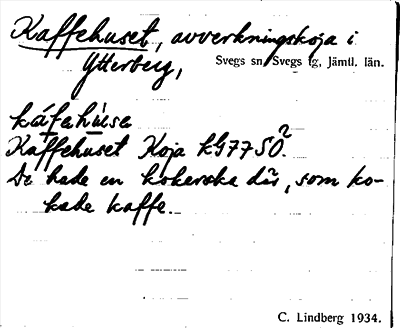 Kaffehuset, avverkningskoja i
Ytterberg,
Svegs sn, Svegs tg, Jämtl. län.
káfahùse
Kaffehuset Koja k977SO?
De hade en kokerska där, som ko-
kade kaffe.
C. Lindberg 1934.